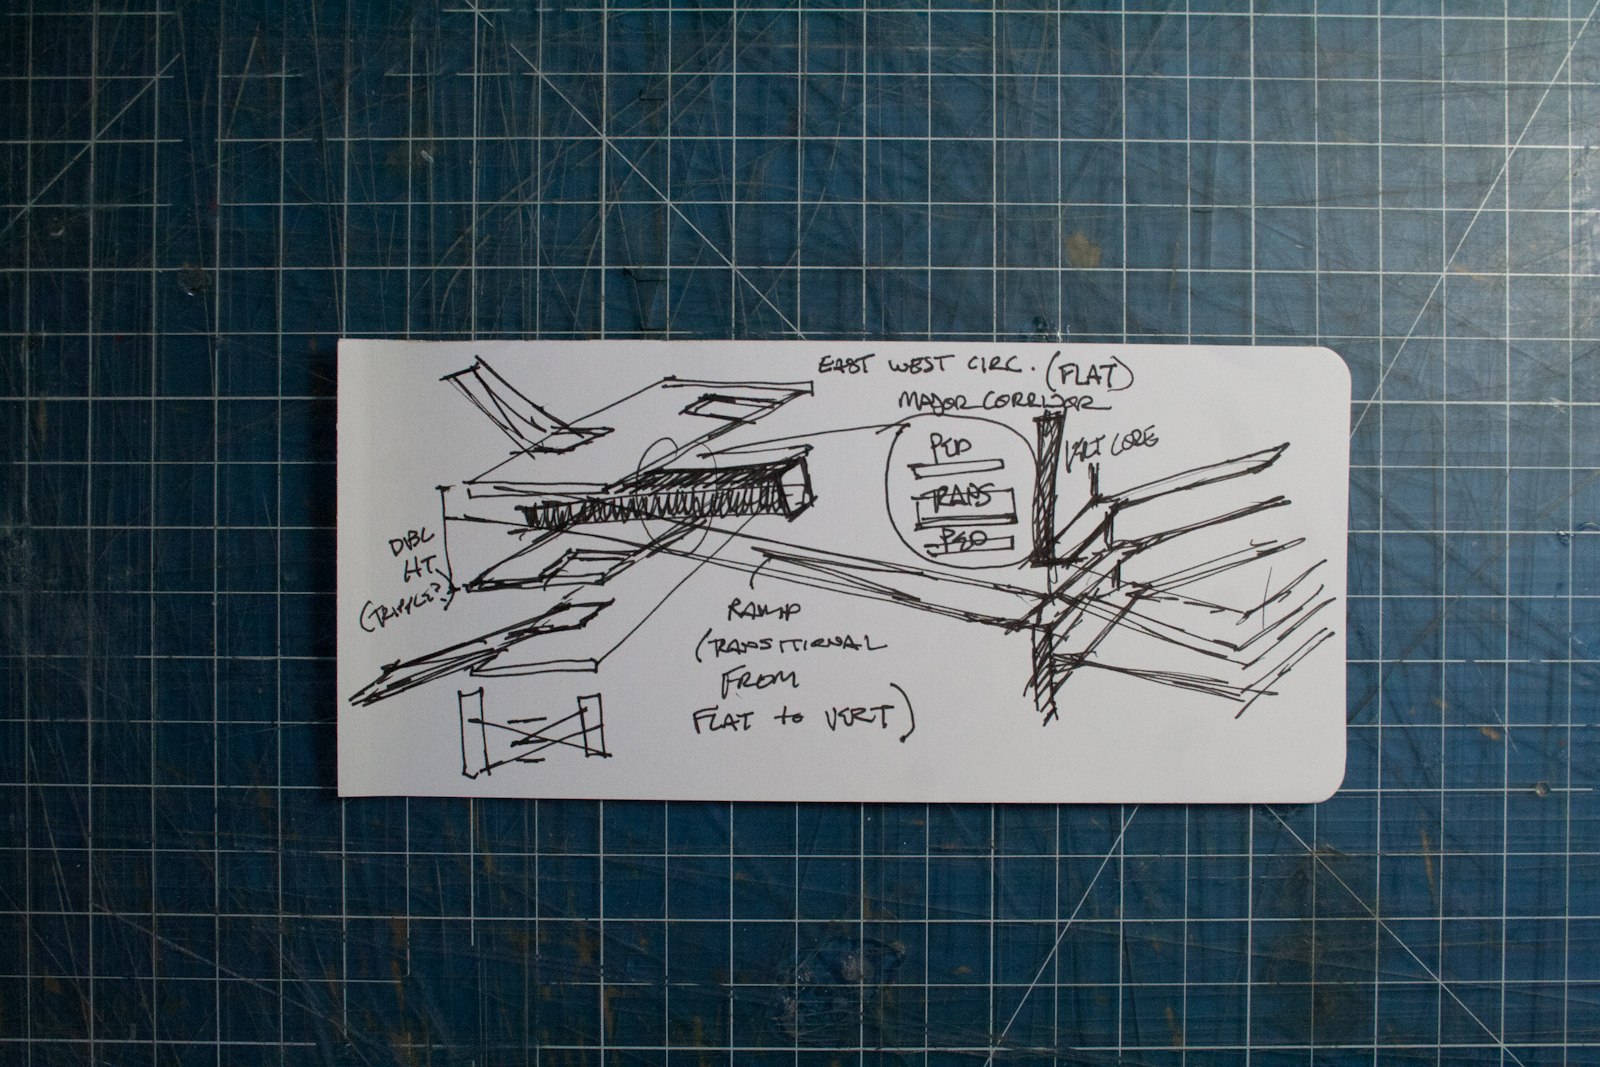 EAST WEST CIRC. (FLAT)
MAJOR CORRIDOR
PED
TRANS
PED
VERT CORE
DBL
HT.
(TRIPPLE?)
RAMP
(TRANSITIONAL
FROM
FLAT to VERT)